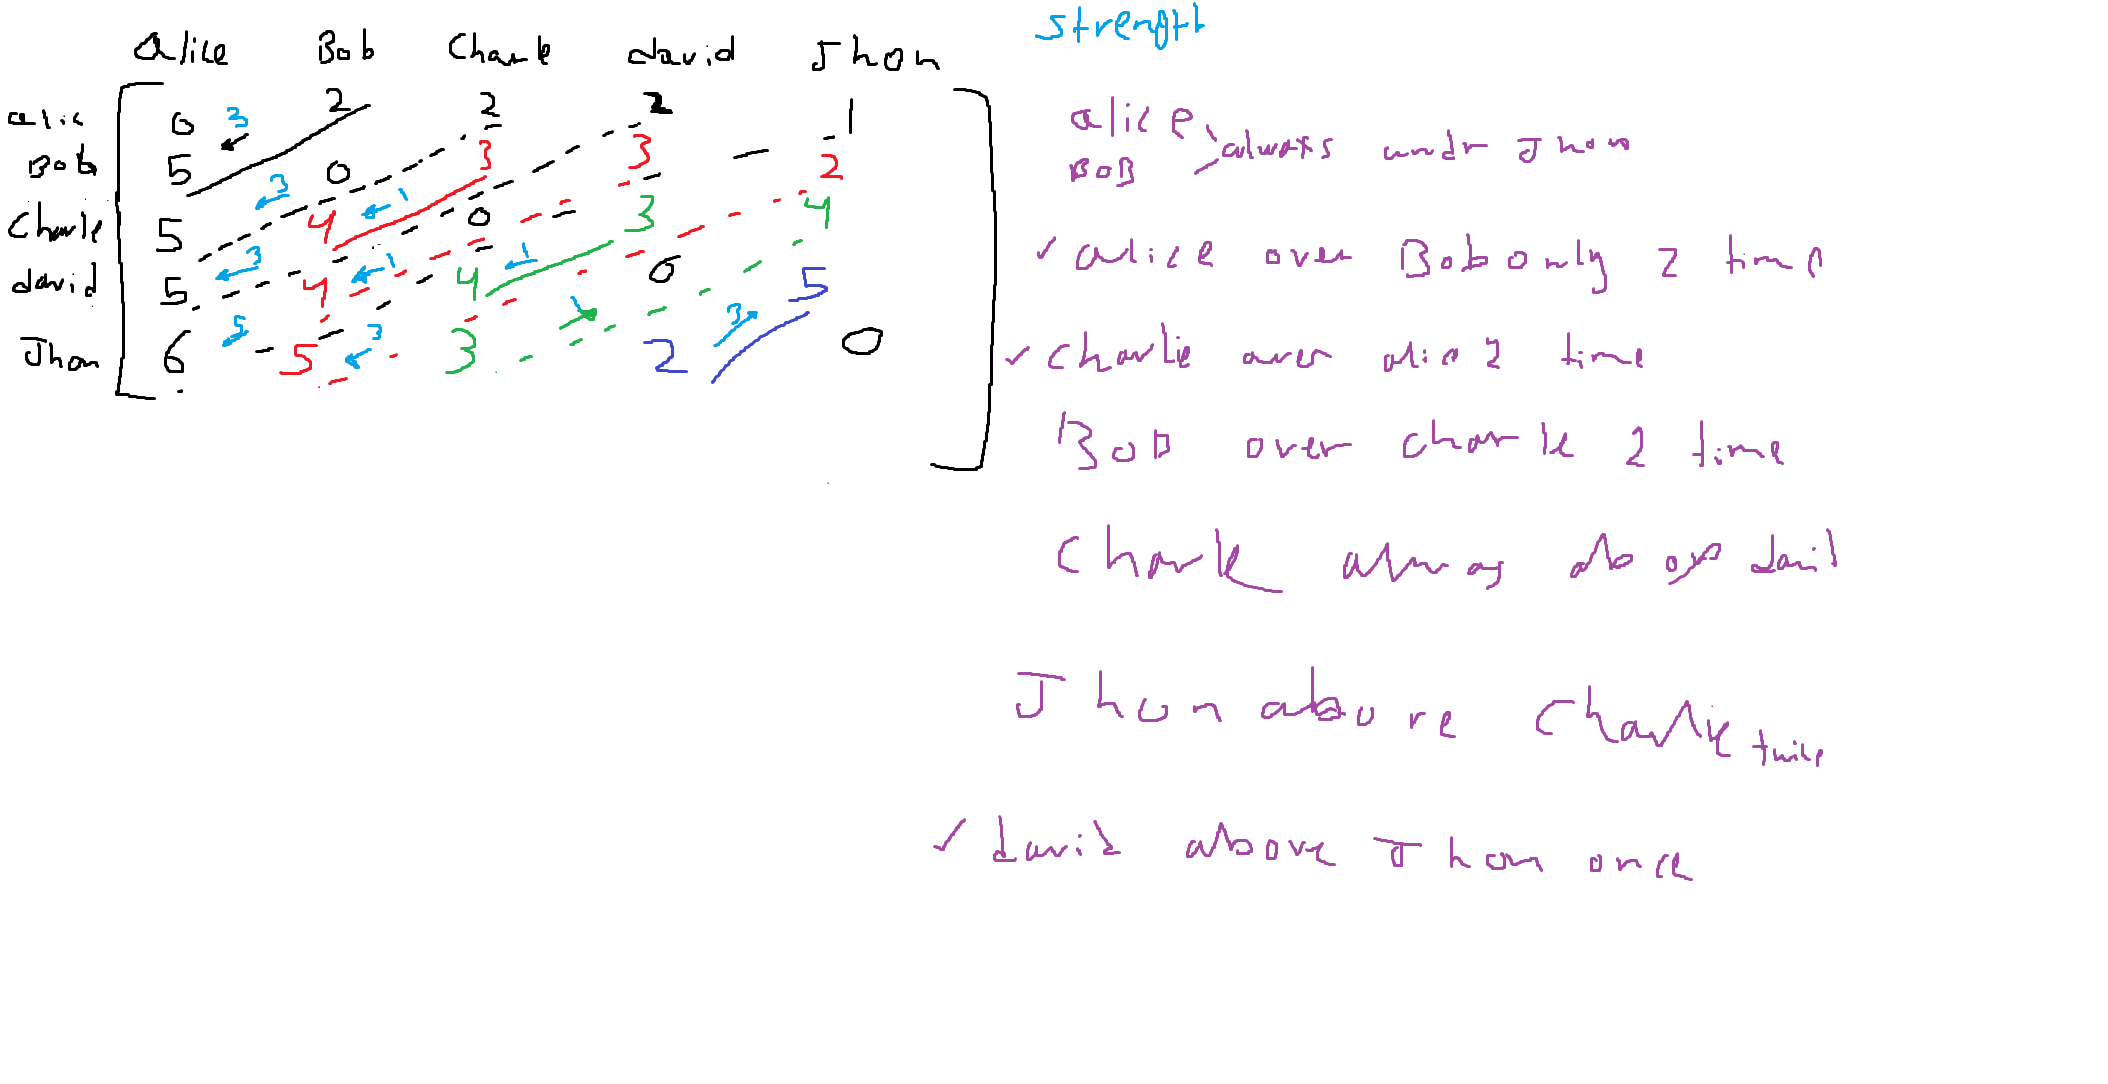 Alice Bob Charle david Jhon
alic 0 3 2 2 2 1
Bob 5 0 3 3 2
3 1
Charle 5 4 0 3 4
3 1 1
david 5 4 4 0 5
5 3 1 3
Jhon 6 5 3 2 0
Strenght
alice
BoB always undr Jhon
✓ alice over Bob only 2 time
✓ Charlie over alic 2 time
BOD over charle 2 time
Charle always david
Jhon above Charlie twice
✓ david above Jhon once